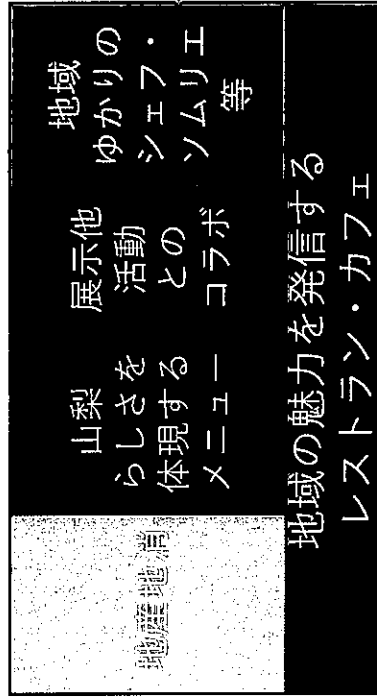 地産地消
山梨
らしさを
体現する
メニュー
展示他
活動
との
コラボ
地域
ゆかりの
シェフ・
ソムリエ
等
地域の魅力を発信する
レストラン・カフェ